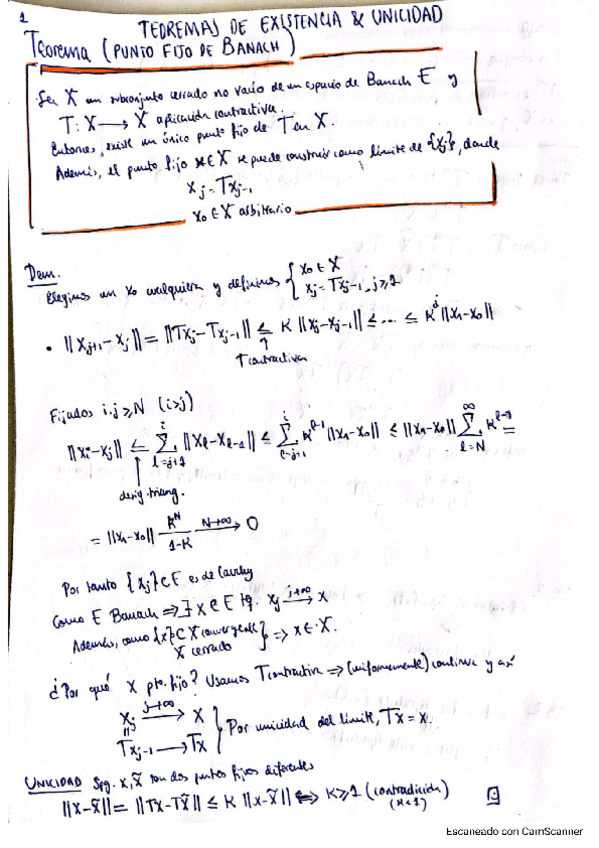 1
TEOREMAS DE EXISTENCIA & UNICIDAD
Teorema (PUNTO FIJO DE BANACH)
Sea X un subconjunto cerrado no vacío de un espacio de Banach E y
T: X → X aplicación contractiva.
Entonces, existe un único punto fijo de T en X.
Además, el punto fijo x ∈ X se puede construir como límite de {xj}, donde
xj = Txj-1
x0 ∈ X arbitrario
Dem.
Elegimos un x0 cualquiera y definimos { x0 ∈ X
xj = Txj-1, j ≥ 1
• ||xj+1 - xj|| = ||Txj - Txj-1|| ≤ K ||xj - xj-1|| ≤ ... ≤ K^j ||x1 - x0||
↑
T contractiva
Fijados i, j ≥ N (i > j)
||xi - xj|| ≤ Σ_{l=j+1}^{i} ||xl - xl-1|| ≤ Σ_{l=j+1}^{i} K^{l-1} ||x1 - x0|| ≤ ||x1 - x0|| Σ_{l=N}^{∞} K^{l-1} =
↑
desig. triang.
= ||x1 - x0|| K^N / (1-K) N→∞ → 0
Por tanto {xj} ⊂ E es de Cauchy
Como E Banach ⇒ ∃ x ∈ E tq. xj j→∞ → x
Además, como {xj} ⊂ X convergente
X cerrado } ⇒ x ∈ X.
¿Por qué x pto. fijo? Usamos T contractiva ⇒ (uniformemente) continua y así
xj j→∞ → x
|| } Por unicidad del límite, Tx = x.
Txj-1 → Tx
UNICIDAD Spg. x, x̃ son dos puntos fijos diferentes
||x - x̃|| = ||Tx - Tx̃|| ≤ K ||x - x̃|| ⇔ K ≥ 1 (contradicción)
(K<1)
Escaneado con CamScanner